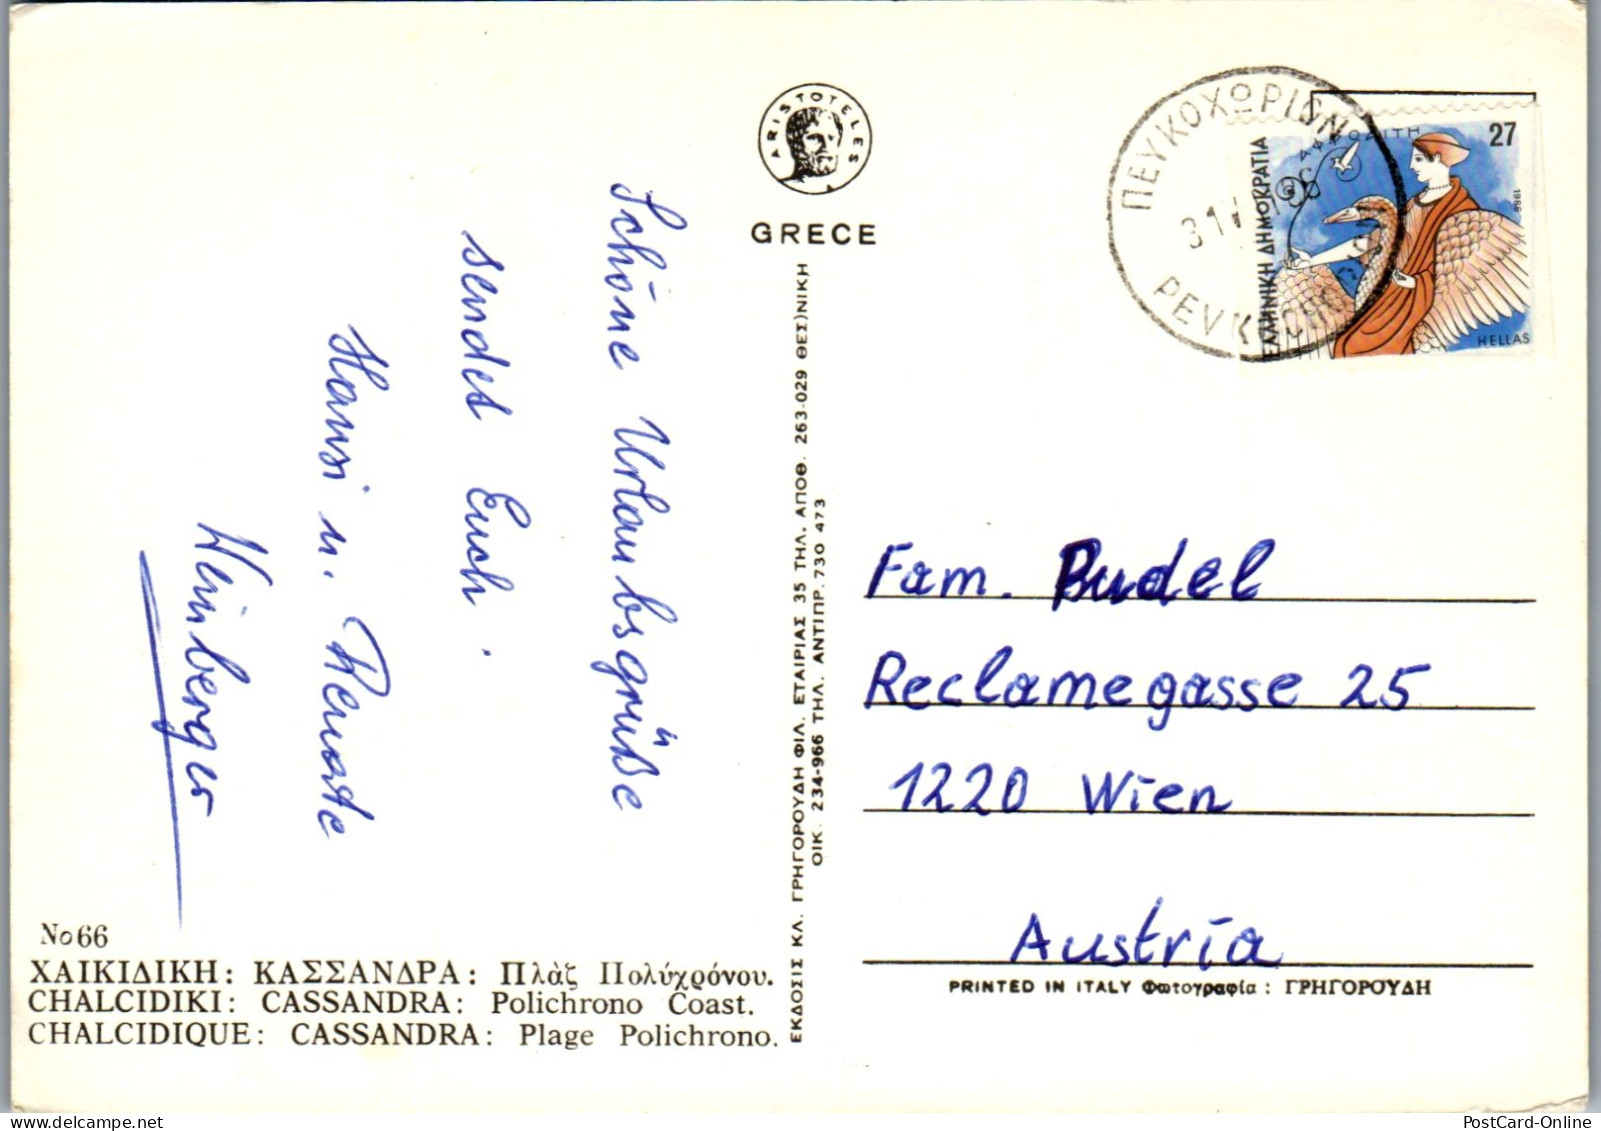 Schöne Urlaubsgrüße
sendet Euch.
Hansi u. Renate
Weinberger
No 66
ΧΑΙΚΙΔΙΚΗ: ΚΑΣΣΑΝΔΡΑ: Πλὰζ Πολύχρόνου.
CHALCIDIKI: CASSANDRA: Polichrono Coast.
CHALCIDIQUE: CASSANDRA: Plage Polichrono.
ARISTOTELES
GRECE
ΕΚΔΟΣΙΣ ΚΛ. ΓΡΗΓΟΡΟΥΔΗ ΦΙΛ. ΕΤΑΙΡΙΑΣ 35 ΤΗΛ. ΑΠΟΘ. 263-029 ΘΕΣ)ΝΙΚΗ
ΟΙΚ. 234-966 ΤΗΛ. ΑΝΤΙΠΡ. 730 473
ΠΕΥΚΟΧΩΡΙΟΝ
ΕΛΛΗΝΙΚΗ ΔΗΜΟΚΡΑΤΙΑ
ΑΦΡΟΔΙΤΗ
27
1986
HELLAS
Fam. Budel
Reclamegasse 25
1220 Wien
Austria
PRINTED IN ITALY Φωτογραφία : ΓΡΗΓΟΡΟΥΔΗ
PostCard-Online